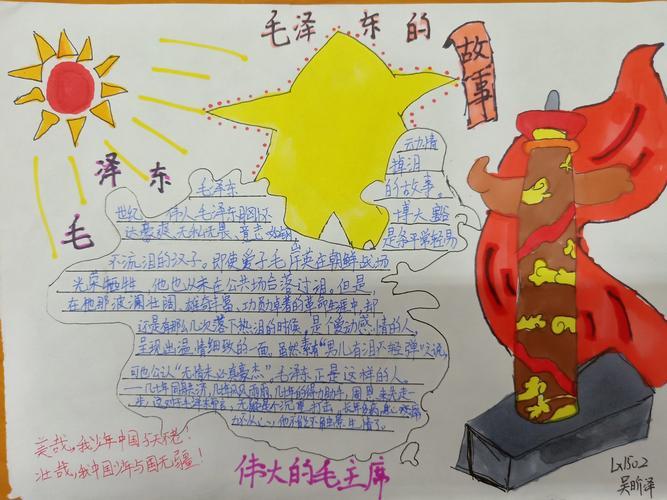 毛泽东的
故事
毛泽东
毛泽东
动情
掉泪
的故事。
世纪 伟人毛泽东
博大豁
达豪爽 无私无畏
是条平常轻易
不流泪的汉子。即使爱子毛岸英在朝鲜战场
光荣牺牲 他也从未在公共场合落过泪。但是,
在他那波澜壮阔 雄奇丰富、功勋卓著的革命生涯中 却
还是有那么几次落下热泪的时候。是个爱动感情的人。
呈现出温情细致的一面。虽然素有“男儿有泪不轻弹”之说,
可也公认“无情未必真豪杰”。毛泽东正是这样的人。
——几十年同舟共济,几十年风雨
美哉,我少年中国与天不老!
壮哉,我中国少年与国无疆!
伟大的毛主席
吴昕泽